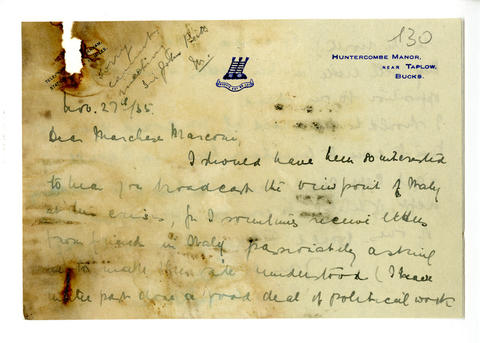 130
sorry
cannot
Sir John
HUNTERCOMBE MANOR,
NEAR TAPLOW,
BUCKS.
Nov. 27th/35.
Dear Marchese Marconi,
I should have been so interested
to hear you broadcast the view point of Italy
at this crisis, for I sometimes receive letters
from friends in Italy passionately asking
me to make their side understood (I have
in the past done a good deal of political work